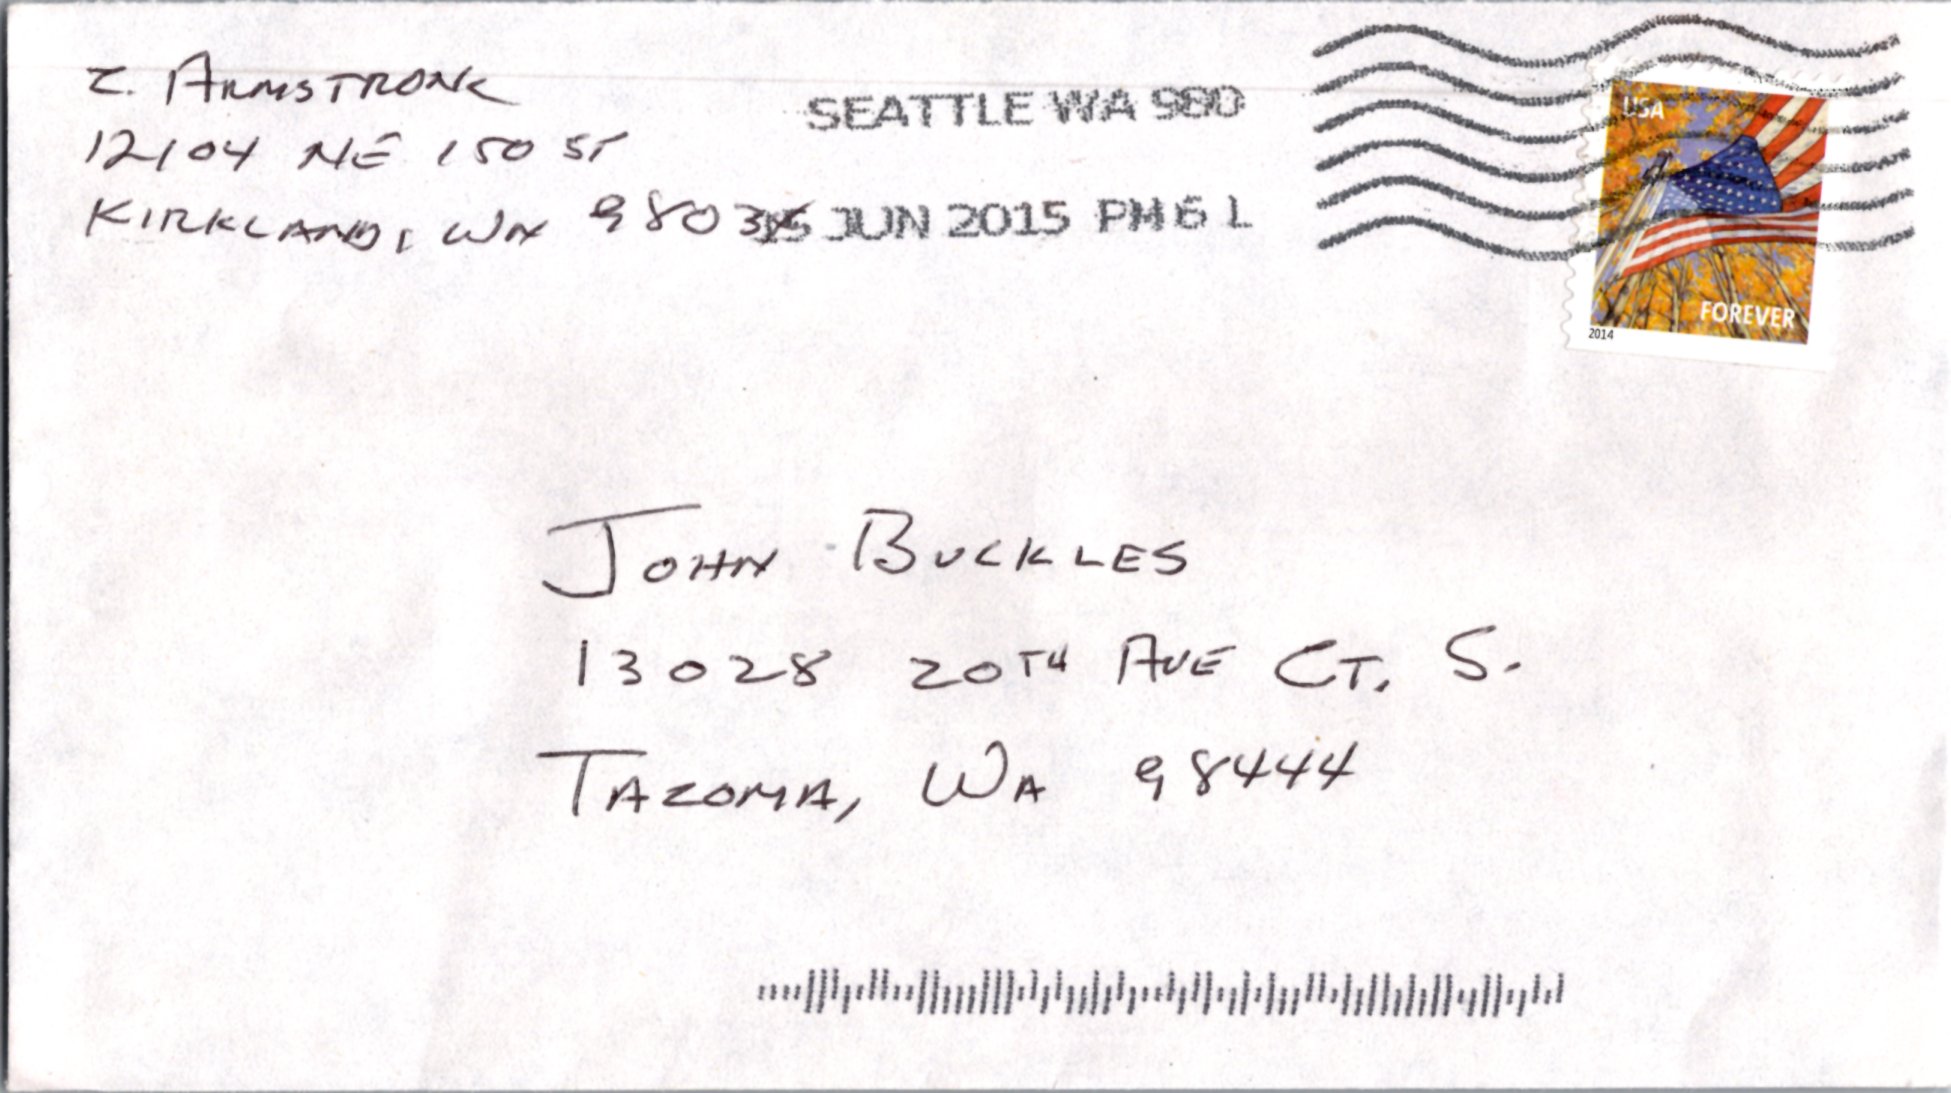 Z. ARMSTRONG
12104 NE 150 ST
KIRKLAND, WA 98034
SEATTLE WA 980
15 JUN 2015 PM 6 L
USA
FOREVER
2014
JOHN BUCKLES
13028 20TH AVE CT. S.
TACOMA, WA 98444